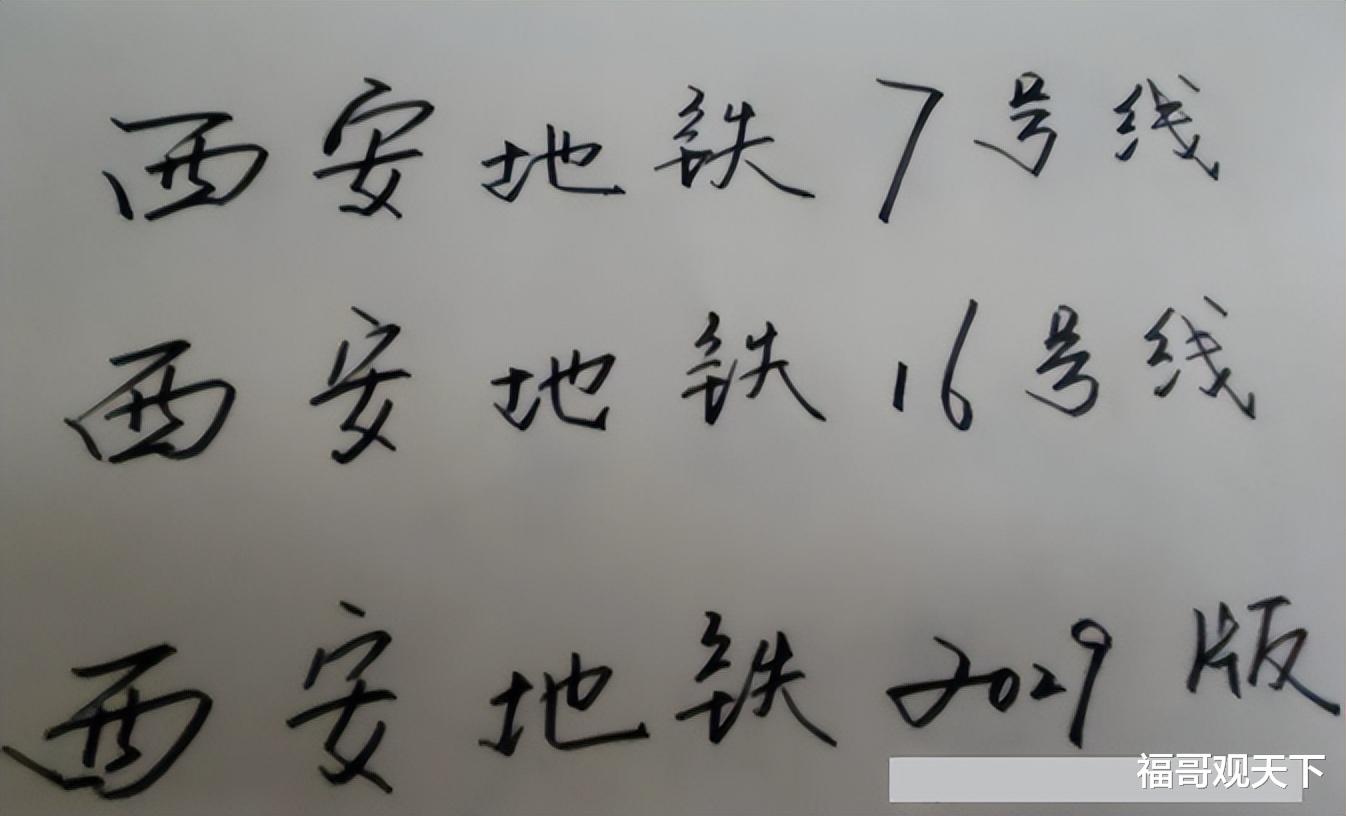 西安地铁7号线
西安地铁16号线
西安地铁2029版
福哥观天下